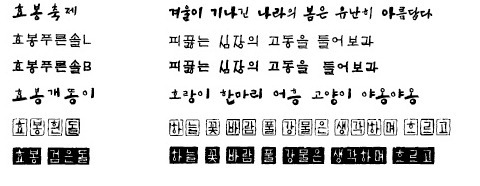 효봉축제 겨울이 기나긴 나라의 봄은 유난히 아름답다
효봉푸른솔L 피끓는 심장의 고동을 들어보라
효봉푸른솔B 피끓는 심장의 고동을 들어보라
효봉개똥이 호랑이 한마리 어흥 고양이 야옹야옹
효봉흰돌 하늘 꽃 바람 풀 강물은 생각하며 흐르고
효봉검은돌 하늘 꽃 바람 풀 강물은 생각하며 흐르고